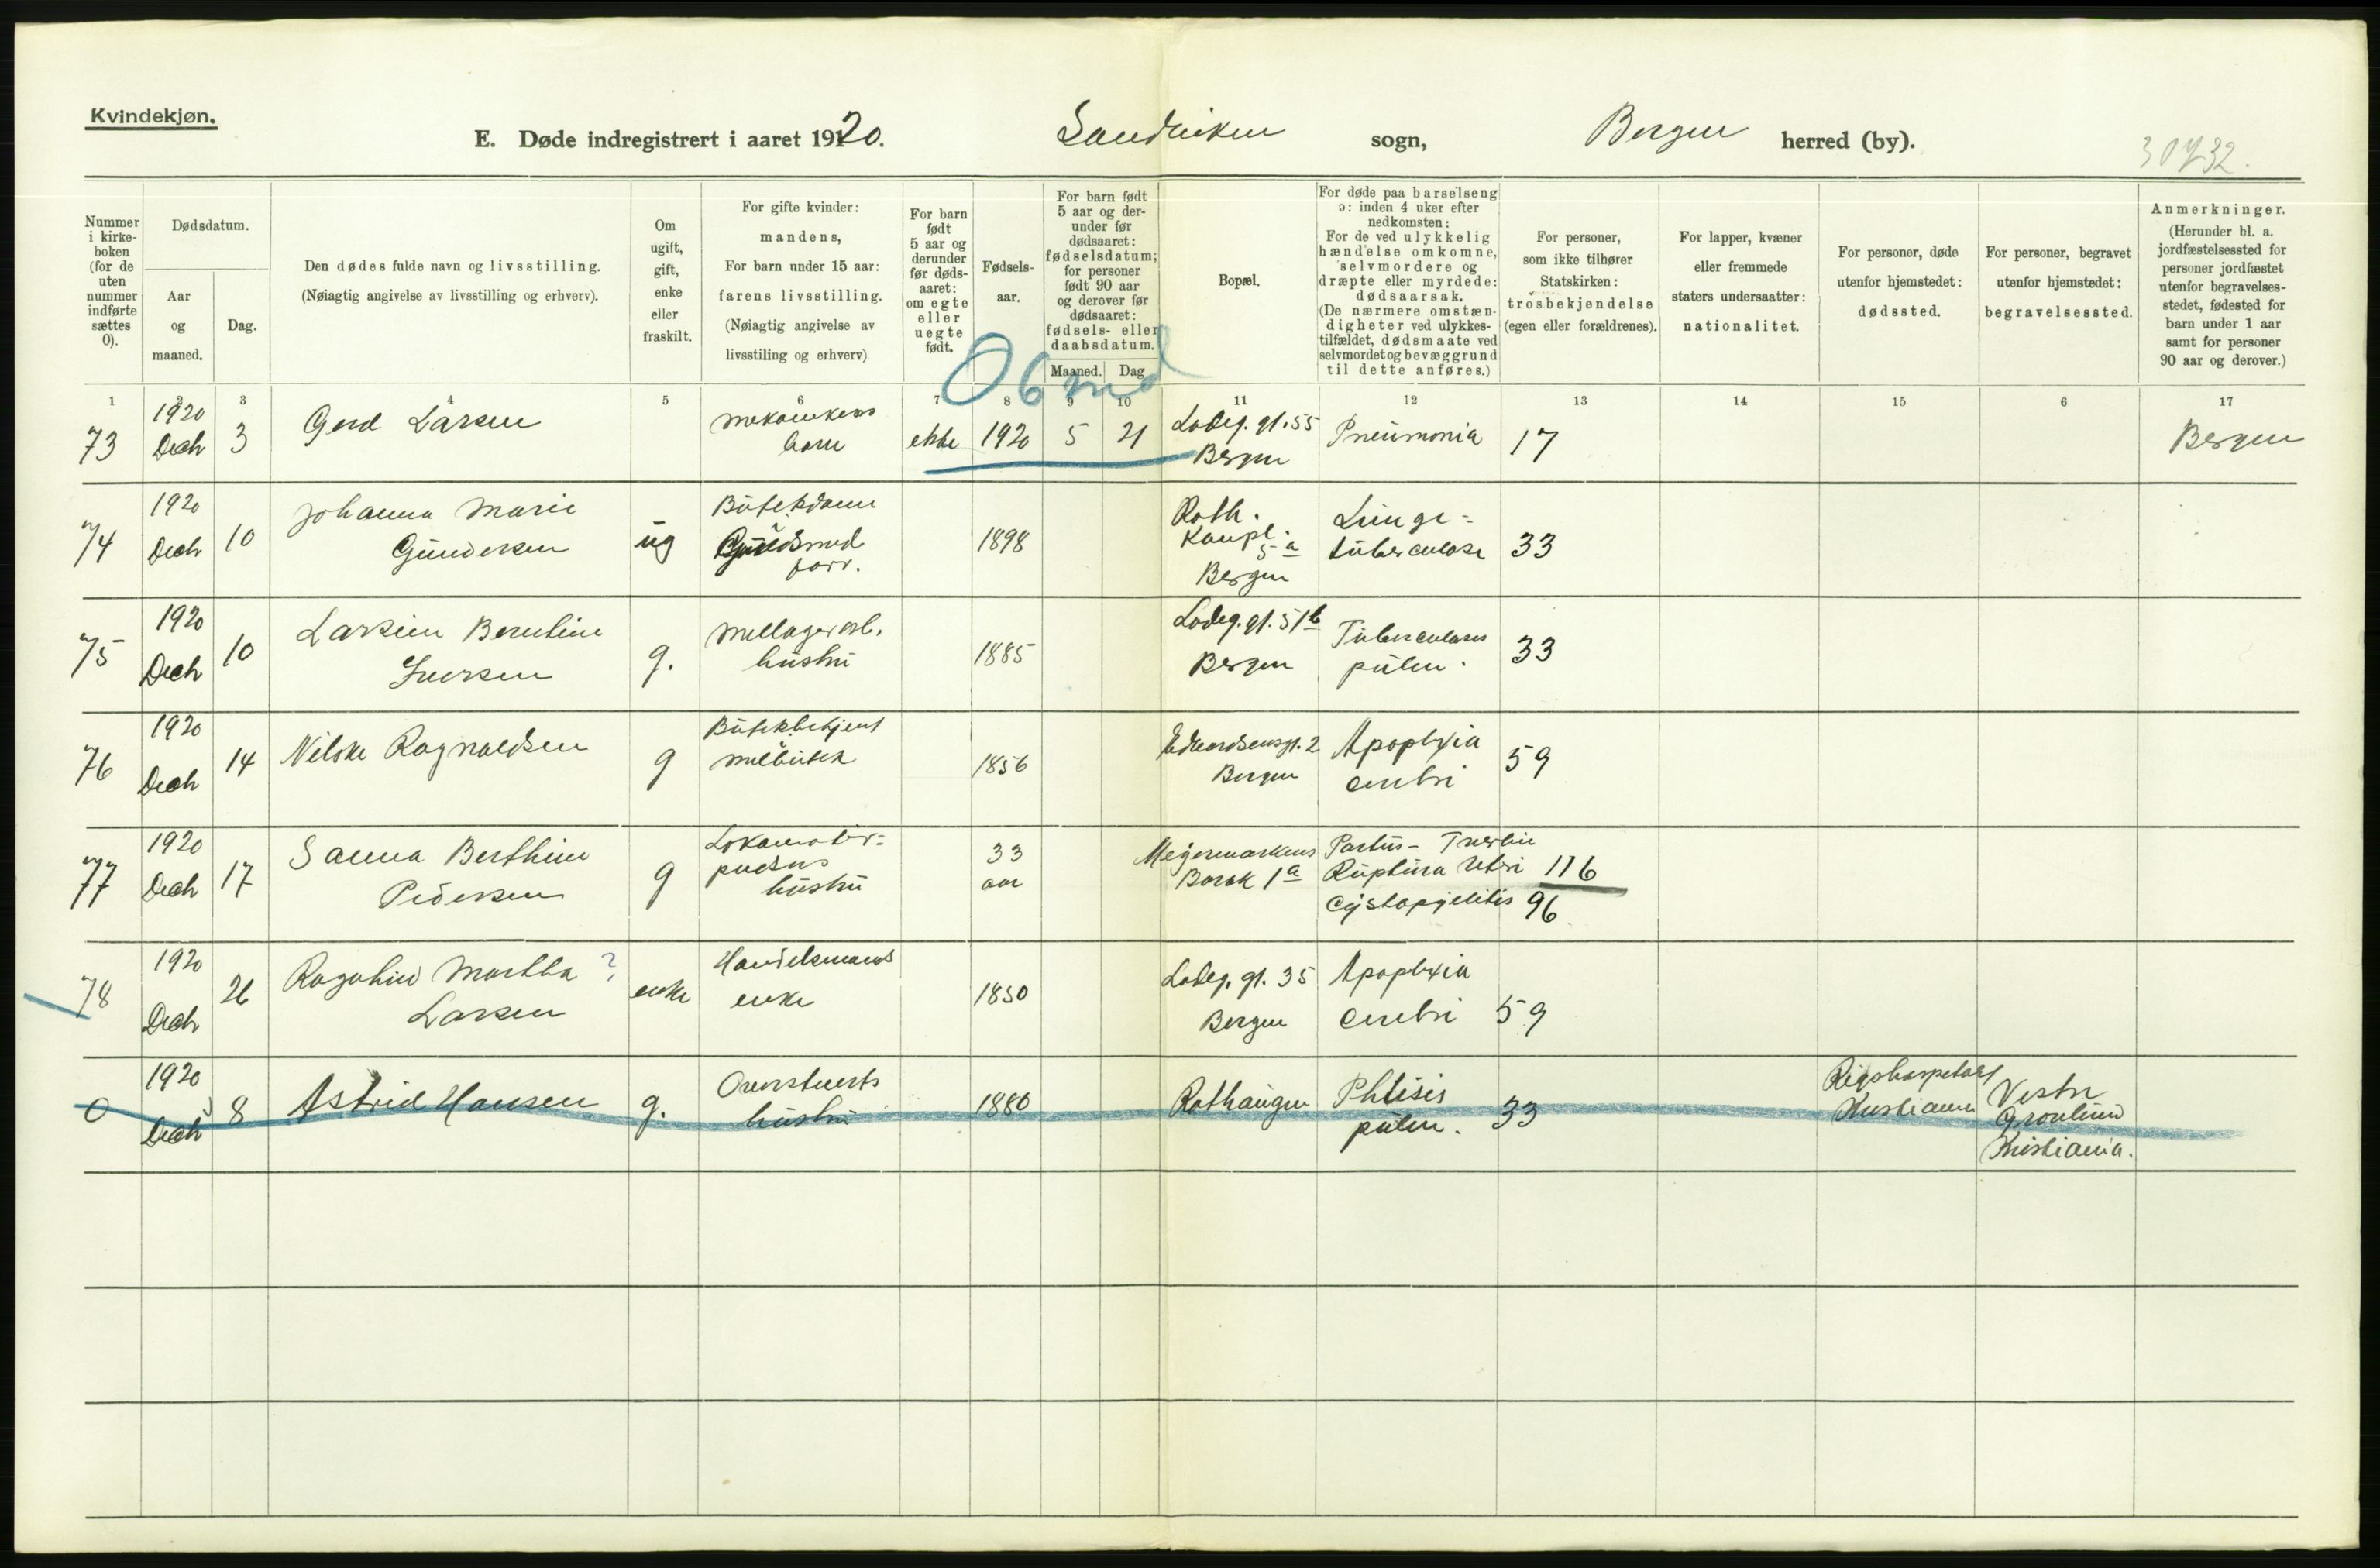 Kvindekjøn.
E. Døde indregistrert i aaret 1920. Sandviken sogn, Bergen herred (by).
30732.
Nummer i kirke- boken (for de uten nummer indførte sættes 0).
Dødsdatum.
Aar og maaned.
Dag.
Den dødes fulde navn og livsstilling.
(Nøiagtig angivelse av livsstilling og erhverv).
Om ugift, gift, enke eller fraskilt.
For gifte kvinder: mandens,
For barn under 15 aar: farens livsstilling.
(Nøiagtig angivelse av livsstiling og erhverv)
For barn født 5 aar og derunder før døds- aaret: om egte eller uegte født.
Fødsels- aar.
For barn født 5 aar og der- under før dødsaaret: fødselsdatum; for personer født 90 aar og derover før dødsaaret: fødsels- eller daabsdatum.
Maaned. Dag
Bopæl.
For døde paa barselseng ɔ: inden 4 uker efter nedkomsten:
For de ved ulykkelig hændelse omkomne, selvmordere og dræpte eller myrdede: dødsaarsak.
(De nærmere omstæn- digheter ved ulykkes- tilfældet, dødsmaate ved selvmordet og bevæggrund til dette anføres.)
For personer, som ikke tilhører Statskirken: trosbekjendelse (egen eller forældrenes).
For lapper, kvæner eller fremmede staters undersaatter: nationalitet.
For personer, døde utenfor hjemstedet: dødssted.
For personer, begravet utenfor hjemstedet: begravelsessted.
Anmerkninger.
(Herunder bl. a. jordfæstelsessted for personer jordfæstet utenfor begravelses- stedet, fødested for barn under 1 aar samt for personer 90 aar og derover.)
06 md
1 2 3 4 5 6 7 8 9 10 11 12 13 14 15 6 17
73 1920 Decb 3 Gerd Larsen mekanikers barn ekte 1920 5 21 Ladeg. gt. 55 Bergen Pneumonia 17 Bergen
74 1920 Decb 10 Johanna Marie Gundersen ug Butikdame 1898 Roth. Kaupl. 5 a Bergen Lunge= tuberculose 33
75 1920 Decb 10 Larsine Berntine Iversen g. Mellagerarb. hustru 1885 Ladeg. gt. 51 b Bergen Tuberculosis pulm. 33
76 1920 Decb 14 Nilske Ragnaldsen g Butikbetjent melbutik 1856 Edvardsensgt. 2 Bergen Apoplexia cerebri 59
77 1920 Decb 17 Sanna Berthine Pedersen g Lokomotiv= pudsers hustru 33 aar Meyermarkens Barak 1 a Partus - Ruptura Uteri 116
Cystopyelitis 96
78 1920 Decb 26 Ragohild Martha ? Larsen enke Handelsmands enke 1850 Ladeg. gt. 35 Bergen Apoplexia cerebri 59
0 1920 Decb 8 Astrid Hansen g. Overstuerts hustru 1880 Rothaugen Phtisis pulm. 33 Rigshospitalet Kristiania Vestre Gravlund Kristiania.